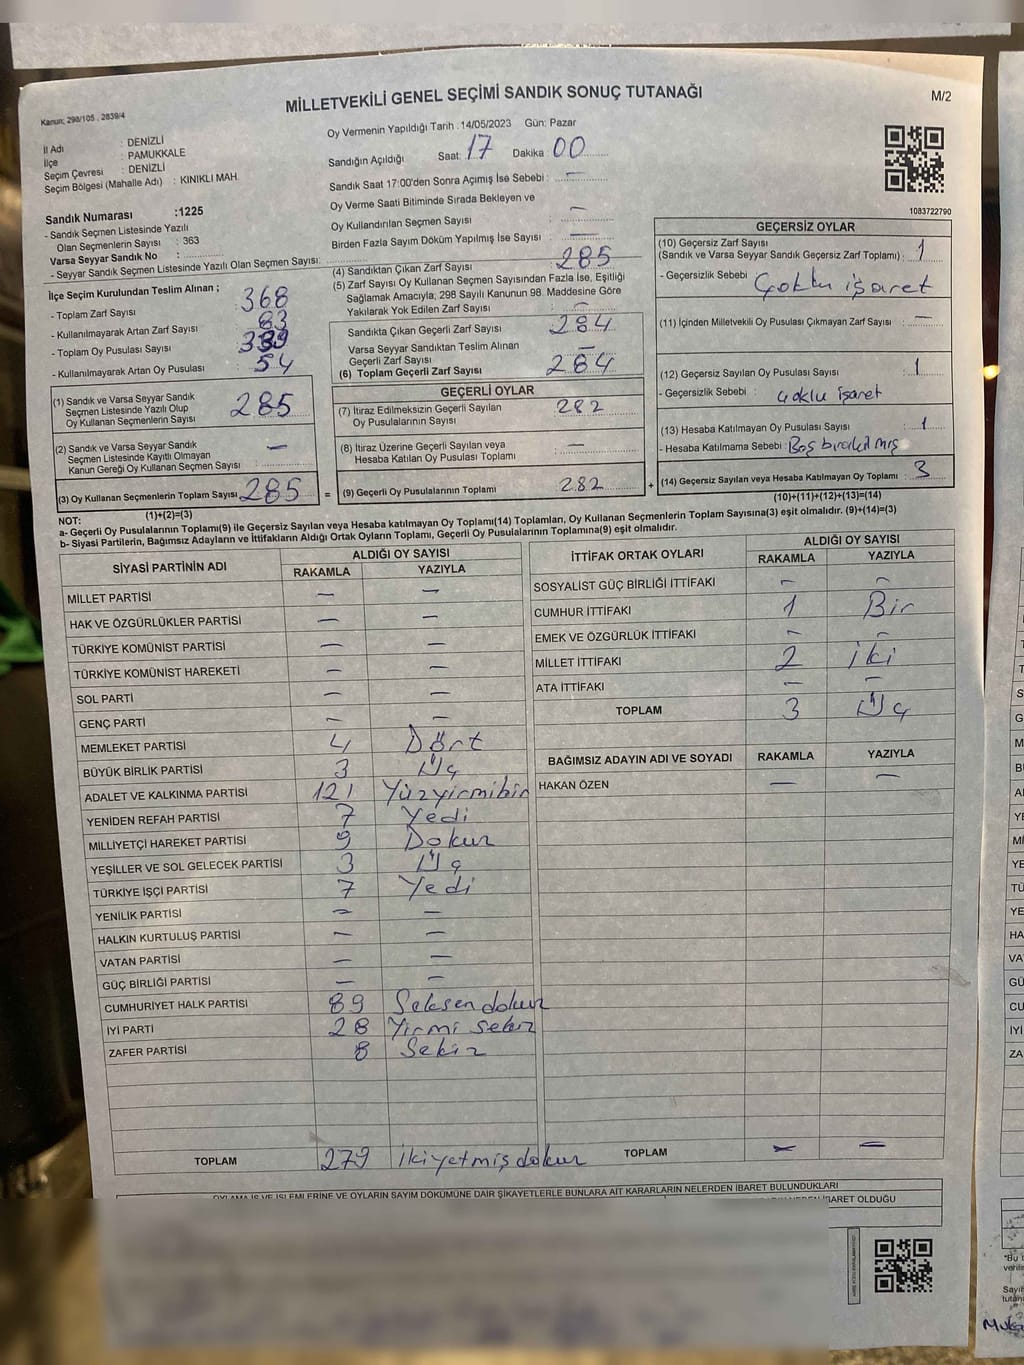 MİLLETVEKİLİ GENEL SEÇİMİ SANDIK SONUÇ TUTANAĞI
M/2
Kanun; 298/105 , 2839/4
İl Adı : DENİZLİ
İlçe : PAMUKKALE
Seçim Çevresi : DENİZLİ
Seçim Bölgesi (Mahalle Adı) : KINIKLI MAH.
Oy Vermenin Yapıldığı Tarih : 14/05/2023 Gün: Pazar
Sandığın Açıldığı Saat: 17 Dakika 00
Sandık Saat 17:00'den Sonra Açımış İse Sebebi : —
Oy Verme Saati Bitiminde Sırada Bekleyen ve
Oy Kullandırılan Seçmen Sayısı : —
Birden Fazla Sayım Döküm Yapılmış İse Sayısı : —
1083722790
Sandık Numarası :1225
- Sandık Seçmen Listesinde Yazılı
Olan Seçmenlerin Sayısı : 363
Varsa Seyyar Sandık No :
- Seyyar Sandık Seçmen Listesinde Yazılı Olan Seçmen Sayısı:
İlçe Seçim Kurulundan Teslim Alınan ;
- Toplam Zarf Sayısı : 368
- Kullanılmayarak Artan Zarf Sayısı : 83
- Toplam Oy Pusulası Sayısı : 339
- Kullanılmayarak Artan Oy Pusulası : 54
(1) Sandık ve Varsa Seyyar Sandık
Seçmen Listesinde Yazılı Olup
Oy Kullanan Seçmenlerin Sayısı : 285
(2) Sandık ve Varsa Seyyar Sandık
Seçmen Listesinde Kayıtlı Olmayan
Kanun Gereği Oy Kullanan Seçmen Sayısı : —
(3) Oy Kullanan Seçmenlerin Toplam Sayısı : 285
(1)+(2)=(3)
(4) Sandıktan Çıkan Zarf Sayısı : 285
(5) Zarf Sayısı Oy Kullanan Seçmen Sayısından Fazla İse, Eşitliği
Sağlamak Amacıyla; 298 Sayılı Kanunun 98. Maddesine Göre
Yakılarak Yok Edilen Zarf Sayısı : —
Sandıkta Çıkan Geçerli Zarf Sayısı : 284
Varsa Seyyar Sandıktan Teslim Alınan
Geçerli Zarf Sayısı : —
(6) Toplam Geçerli Zarf Sayısı : 284
GEÇERLİ OYLAR
(7) İtiraz Edilmeksizin Geçerli Sayılan
Oy Pusulasının Sayısı : 282
(8) İtiraz Üzerine Geçerli Sayılan veya
Hesaba Katılan Oy Pusulası Toplamı : —
= (9) Geçerli Oy Pusulalarının Toplamı : 282 +
GEÇERSİZ OYLAR
(10) Geçersiz Zarf Sayısı
(Sandık ve Varsa Seyyar Sandık Geçersiz Zarf Toplamı) : 1
- Geçersizlik Sebebi : Çoklu işaret
(11) İçinden Milletvekili Oy Pusulası Çıkmayan Zarf Sayısı : —
(12) Geçersiz Sayılan Oy Pusulası Sayısı : 1
- Geçersizlik Sebebi : çoklu işaret
(13) Hesaba Katılmayan Oy Pusulası Sayısı : 1
- Hesaba Katılmama Sebebi : Boş bırakılmış
(14) Geçersiz Sayılan veya Hesaba Katılmayan Oy Toplamı : 3
(10)+(11)+(12)+(13)=(14)
NOT:
a- Geçerli Oy Pusulalarının Toplamı(9) ile Geçersiz Sayılan veya Hesaba katılmayan Oy Toplamı(14) Toplamları, Oy Kullanan Seçmenlerin Toplam Sayısına(3) eşit olmalıdır. (9)+(14)=(3)
b- Siyasi Partilerin, Bağımsız Adayların ve İttifakların Aldığı Ortak Oyların Toplamı, Geçerli Oy Pusulalarının Toplamına(9) eşit olmalıdır.
SİYASİ PARTİNİN ADI
ALDIĞI OY SAYISI
RAKAMLA YAZIYLA
MİLLET PARTİSİ — —
HAK VE ÖZGÜRLÜKLER PARTİSİ — —
TÜRKİYE KOMÜNİST PARTİSİ — —
TÜRKİYE KOMÜNİST HAREKETİ — —
SOL PARTİ — —
GENÇ PARTİ — —
MEMLEKET PARTİSİ 4 Dört
BÜYÜK BİRLİK PARTİSİ 3 Üç
ADALET VE KALKINMA PARTİSİ 121 Yüzyirmibir
YENİDEN REFAH PARTİSİ 7 Yedi
MİLLİYETÇİ HAREKET PARTİSİ 9 Dokuz
YEŞİLLER VE SOL GELECEK PARTİSİ 3 Üç
TÜRKİYE İŞÇİ PARTİSİ 7 Yedi
YENİLİK PARTİSİ — —
HALKIN KURTULUŞ PARTİSİ — —
VATAN PARTİSİ — —
GÜÇ BİRLİĞİ PARTİSİ — —
CUMHURİYET HALK PARTİSİ 89 Seksen dokuz
İYİ PARTİ 28 Yirmi sekiz
ZAFER PARTİSİ 8 Sekiz
TOPLAM 279 ikiyetmiş dokuz
İTTİFAK ORTAK OYLARI
ALDIĞI OY SAYISI
RAKAMLA YAZIYLA
SOSYALİST GÜÇ BİRLİĞİ İTTİFAKI — —
CUMHUR İTTİFAKI 1 Bir
EMEK VE ÖZGÜRLÜK İTTİFAKI — —
MİLLET İTTİFAKI 2 iki
ATA İTTİFAKI — —
TOPLAM 3 Üç
BAĞIMSIZ ADAYIN ADI VE SOYADI RAKAMLA YAZIYLA
HAKAN ÖZEN — —
TOPLAM — —
OYLAMA İŞ VE İŞLEMLERİNE VE OYLARIN SAYIM DÖKÜMÜNE DAİR ŞİKAYETLERLE BUNLARA AİT KARARLARIN NELERDEN İBARET BULUNDUKLARI
İBARET OLDUĞU